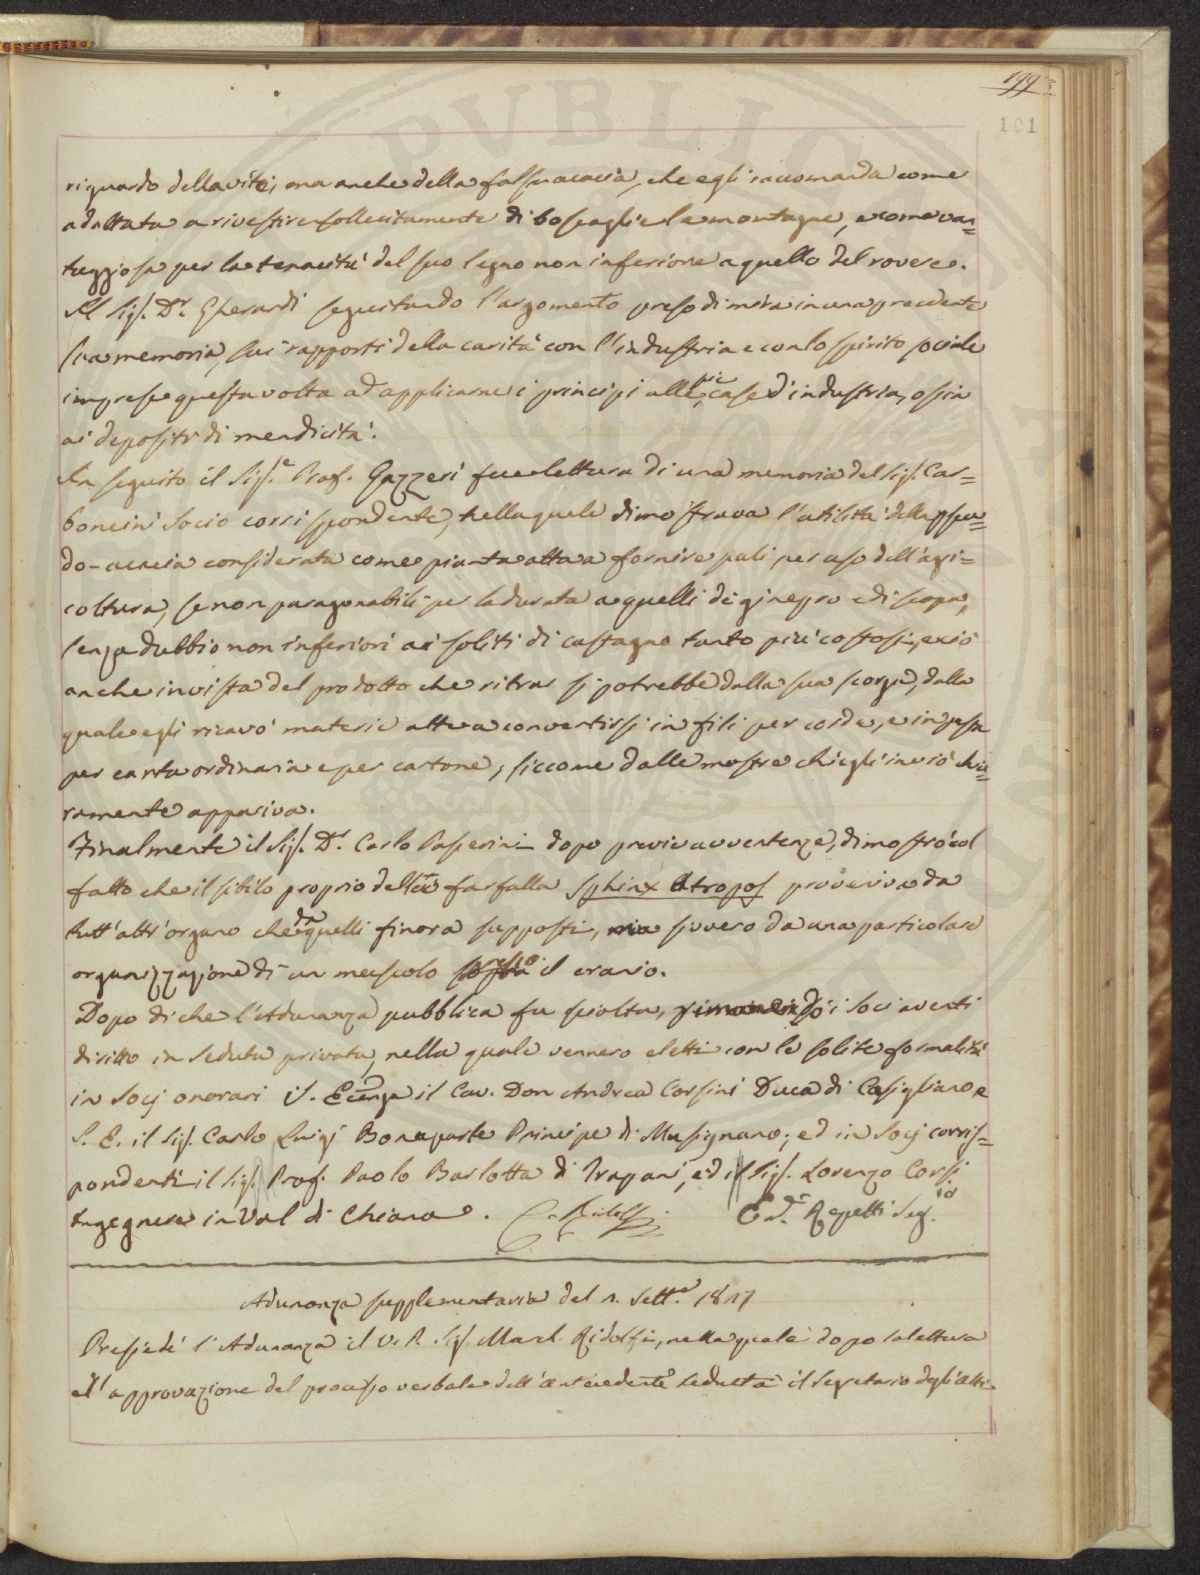 199
101
riguardo della vite, ma anche della falsa acacia, che egli raccomanda come
adattata a rivestire sollecitamente di boscaglie le montagne, e come van=
taggiosa per la tenacità del suo legno non inferiore a quello del rovere.
Il Sig. Dr. Gherardi seguitando l'argomento preso di mira in una precedente
sua memoria, sui rapporti della carità con l'industria e con lo spirito sociale
imprese questa volta ad applicarne i principj alle pie case d'industria, ossia
ai depositi di mendicità.
In seguito il Sig.e Prof. Gazzeri fece lettura di una memoria del Sig. Car=
boncini Socio corrispondente, nella quale dimostrava l'utilità della pseu=
do-acacia considerata come pianta atta a fornire pali per uso dell'agri=
coltura, se non paragonabili per la durata a quelli di ginepro e di scopa,
senza dubbio non inferiori ai soliti di castagno tanto più costosi, e ciò
anche in vista del prodotto che ritrar si potrebbe dalla sua scorza, dalla
quale egli ricavò materie atte a convertirsi in fili per corde, e in pasta
per carta ordinaria e per cartone, siccome dalle mostre ch'egli inviò chia=
ramente appariva.
Finalmente il Sig. Dr. Carlo Passerini dopo previe avvertenze, dimostrò col
fatto che il sibilo proprio della farfalla Sphinx Atropos proveniva da
tutt'altr'organo che da quelli finora supposti, ma sivvero da una particolare
organizzazione di un muscolo presso il cranio.
Dopo di che l'Adunanza pubblica fu sciolta, rimanendo i Soci aventi
diritto in seduta privata, nella quale vennero eletti con le solite formalità
in Socj onorari S. Eccnza il Cav. Don Andrea Corsini Duca di Casigliano, e
S. E. il Sig. Carlo Luigi Bonaparte Principe di Musignano; ed in Socj corris=
pondenti il Sig. Prof. Paolo Barlotta di Trapani, ed il Sig. Lorenzo Corsi
Ingegnere in Val di Chiana. C. Ridolfi E. Repetti Seg.
Adunanza supplementaria del 1. Sett.e 1827
Presiedè l'Adunanza il V. P. Sig. March. Ridolfi, nella quale dopo la lettura
e l'approvazione del processo verbale dell'antecedente seduta il Segretario degli Atti